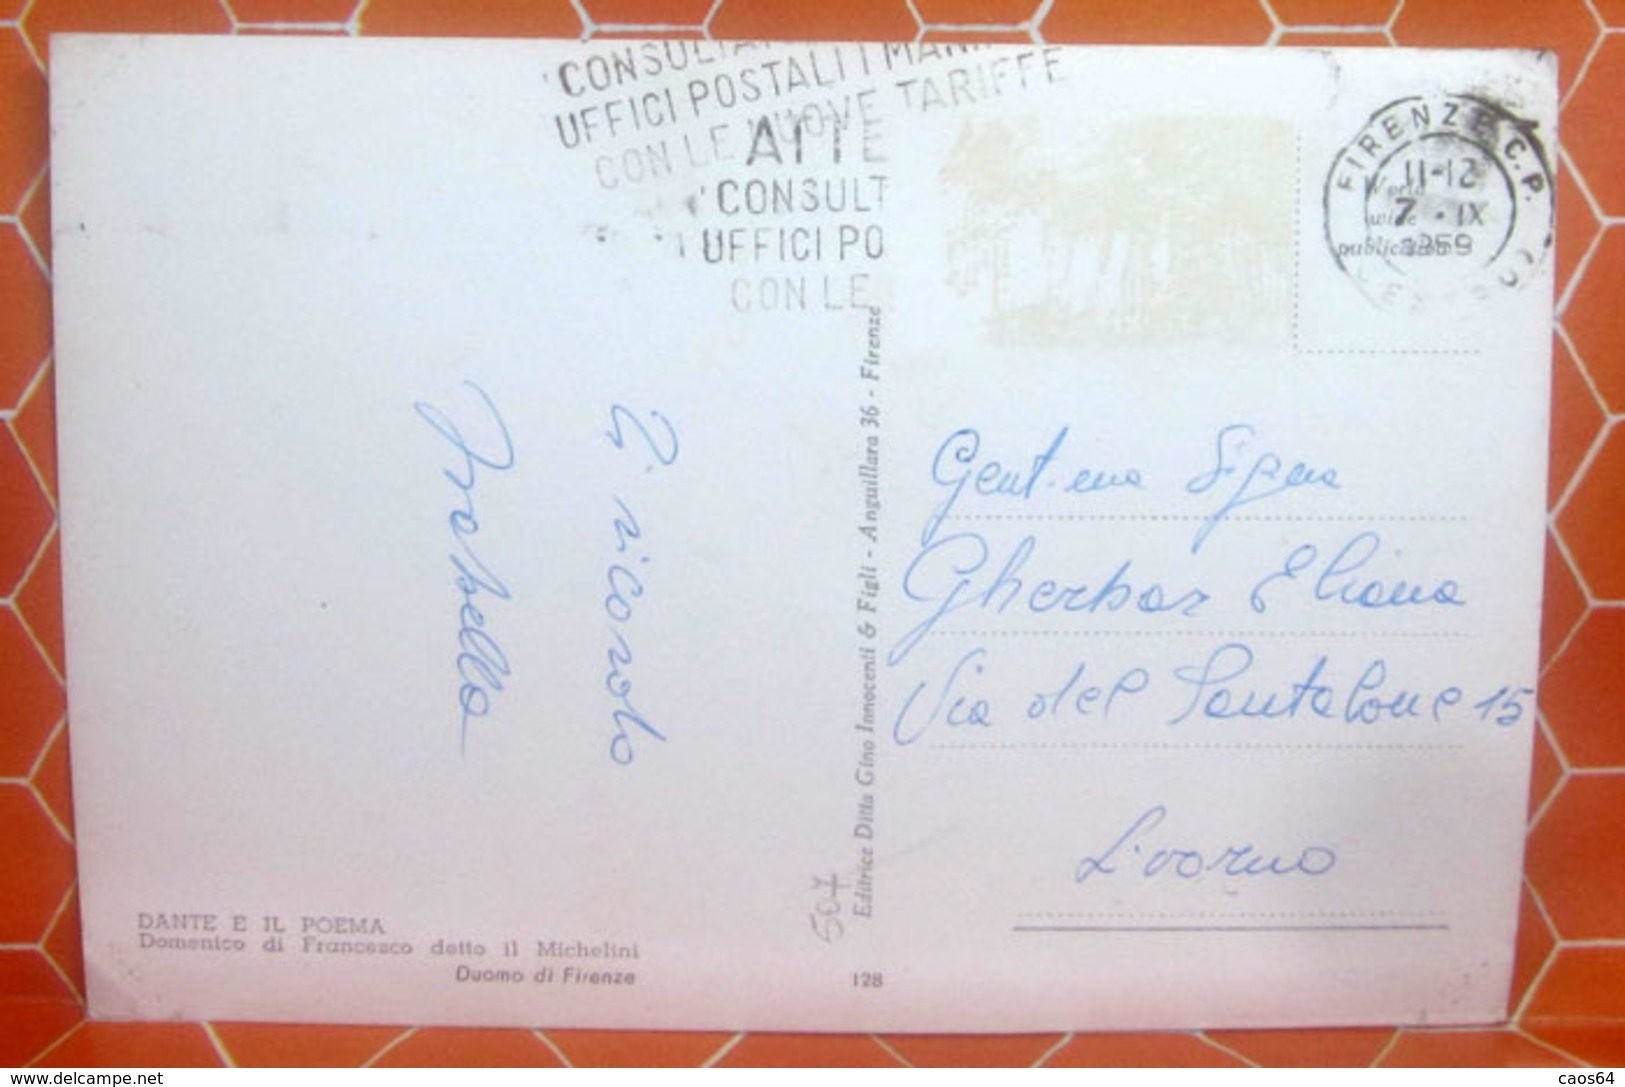 CONSULTA
UFFICI POSTALI I MAN
CON LE NUOVE TARIFFE
ATTE
CONSULT
UFFICI PO
CON LE
FIRENZE C.P.
11-12
7 · IX
World
wide
publication
Ti ricordo
Isabella
Gent.ma Sig.na
Gherbaz Eliana
Via del Pantalone 15
Livorno
Editrice Ditta Gino Innocenti & Figli - Anguillara 36 - Firenze
507
DANTE E IL POEMA
Domenico di Francesco detto il Michelini
Duomo di Firenze
128
www.delcampe.net
caos64